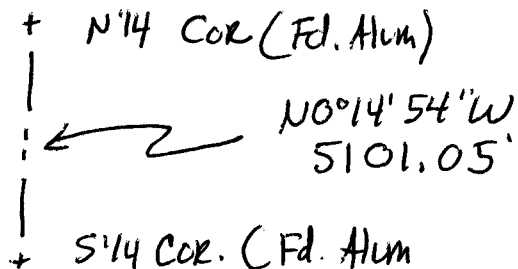 N'14 COR (Fd. Alum)
N0°14'54"W
5101.05'
S'14 COR. (Fd. Alum